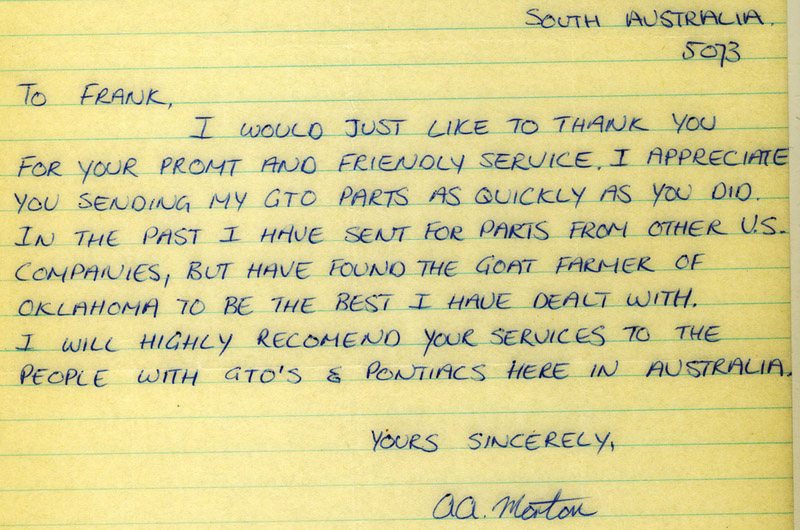 SOUTH AUSTRALIA.
5073
TO FRANK,
I WOULD JUST LIKE TO THANK YOU
FOR YOUR PROMT AND FRIENDLY SERVICE. I APPRECIATE
YOU SENDING MY GTO PARTS AS QUICKLY AS YOU DID.
IN THE PAST I HAVE SENT FOR PARTS FROM OTHER U.S.
COMPANIES, BUT HAVE FOUND THE GOAT FARMER OF
OKLAHOMA TO BE THE BEST I HAVE DEALT WITH.
I WILL HIGHLY RECOMEND YOUR SERVICES TO THE
PEOPLE WITH GTO'S & PONTIACS HERE IN AUSTRALIA.
YOURS SINCERELY,
A.A. Morton